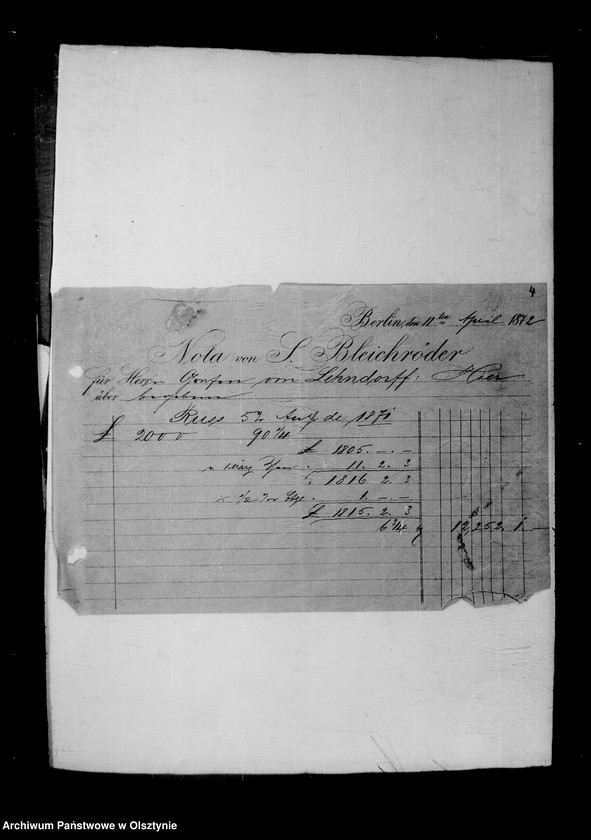 4
Berlin, den 11ten April 1872
Nota von S. Bleichröder
für Herrn Grafen von Lehndorff. Hier
über begebene
Russ 5% Anl de 1871
£ 2000 90 1/4
£ 1805. — . —
11. 2. 3
1816. 2. 3
1. — . —
£ 1815. 2. 3
6 3/4 12,252. 1. —
Archiwum Państwowe w Olsztynie